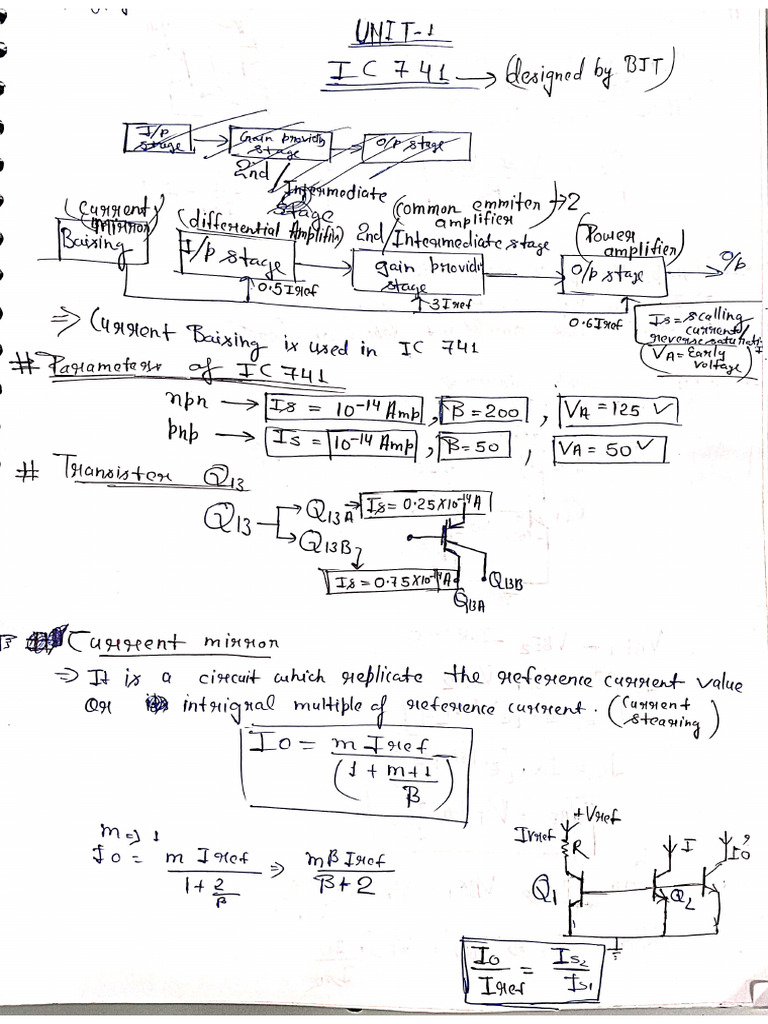 UNIT-1
IC 741 → (designed by BJT)
I/P stage → Gain providing stage → O/P stage
2nd/Intermediate stage
(Current mirror) Baising
(differential Amplifier) I/p stage
(common emmiter amplifier) → 2
2nd/Intermediate stage
gain providing stage
(Power amplifier)
O/p stage → O/p
0.5Iref
3Iref
0.6Iref
Is = scalling current/reverse saturation I
(VA = Early voltage)
⇒ Current Baising is used in IC 741
# Parameters of IC 741
npn → Is = 10⁻¹⁴ Amp, B = 200, VA = 125 V
pnp → Is = 10⁻¹⁴ Amp, B = 50, VA = 50 V
# Transistor Q13
Q13 → Q13A → Is = 0.25×10⁻¹⁴A
→ Q13B → Is = 0.75×10⁻¹⁴A
Q13B
Q13A
Current mirror
⇒ It is a circuit which replicate the reference current value
or intrigral multiple of reference current. (Current stearing)
Io = m Iref / (1 + (m+1)/β)
m ⇒ 1
Io = m Iref / (1 + 2/β) ⇒ mβ Iref / (β + 2)
+Vref
IVref
R
I
Io
Q1
Q2
Io/Iref = Is2/Is1